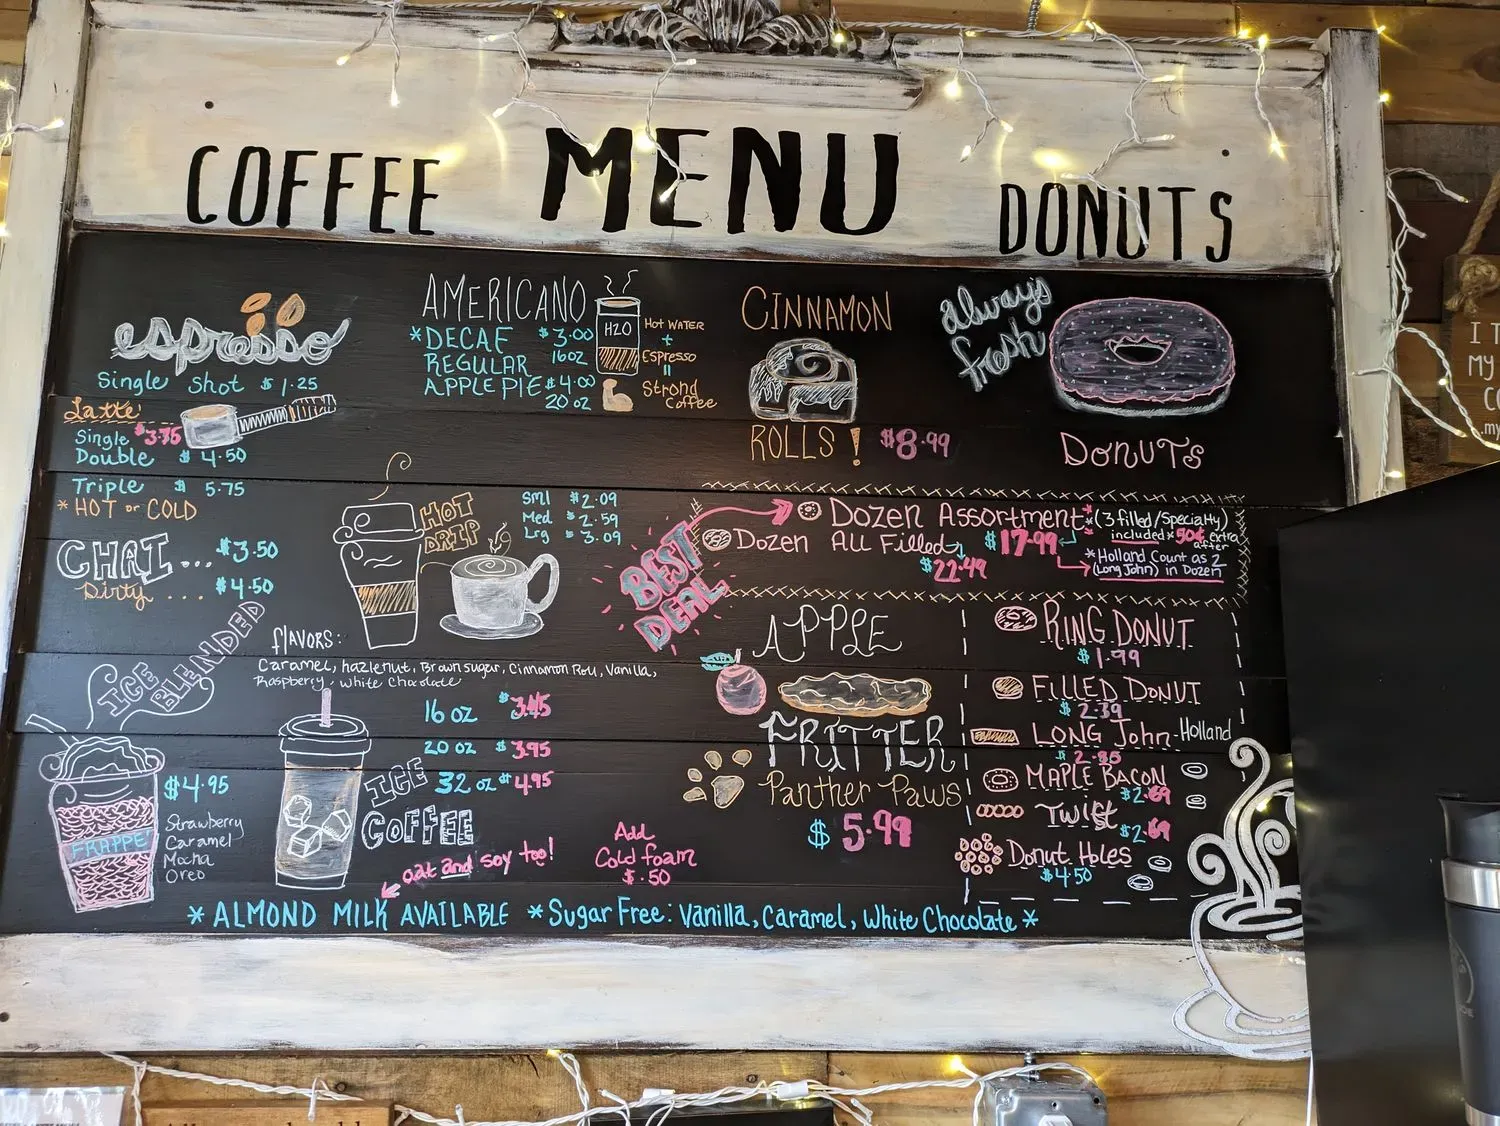 COFFEE MENU DONUTS
espresso
Single Shot $1.25
Latte
Single $3.75
Double $4.50
Triple $5.75
*HOT or COLD
CHAI... $3.50
Dirty.... $4.50
ICE BLENDED
FRAPPE'
$4.95
Strawberry
Caramel
Mocha
Oreo
AMERICANO
*DECAF $3.00
REGULAR 16oz
APPLE PIE $4.00
20 oz
H2O
Hot Water
+
Espresso
=
Strong
Coffee
HOT
DRIP
Sml $2.09
Med $2.59
Lrg $3.09
flavors:
Caramel, hazlenut, Brown sugar, Cinnamon Roll, Vanilla,
Raspberry, White Chocolate
16 oz $3.45
20 oz $3.95
32 oz $4.95
ICE
COFFEE
oat and soy too!
Add
Cold foam
$.50
*ALMOND MILK AVAILABLE *Sugar Free: Vanilla, Caramel, White Chocolate*
CINNAMON
ROLLS! $8.99
always
fresh
DONUTS
BEST
DEAL
Dozen Assortment
$17.99
*(3 filled/Specialty)
included* 50¢ extra
after
*Holland Count as 2
(Long John) in Dozen
Dozen All Filled
$22.49
APPLE
FRITTER
Panther Paws
$5.99
RING DONUT
$1.99
FILLED DONUT
$2.39
LONG John - Holland
MAPLE BACON
$2.69
Twist
$2.69
Donut Holes
$4.50
I T
MY
CO